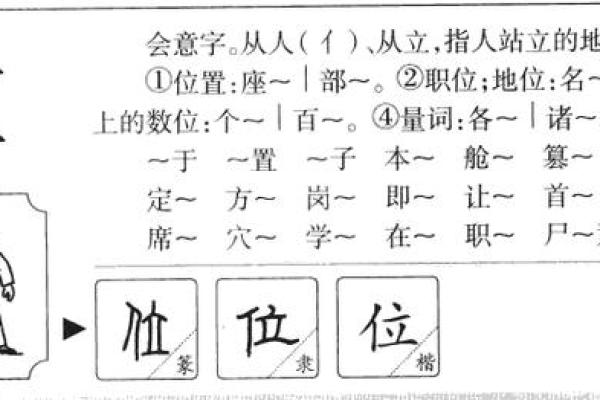 会意字。从人(亻)、从立,指人站立的地
①位置:座～|部～。②职位;地位:名～
上的数位:个～|百～。④量词:各～|诸～
～于 ～置 ～子 本～ 舱～ 篡～
定～ 方～ 岗～ 即～ 让～ 首～
席～ 穴～ 学～ 在～ 职～ 尸～
位 篆 位 隶 位 楷